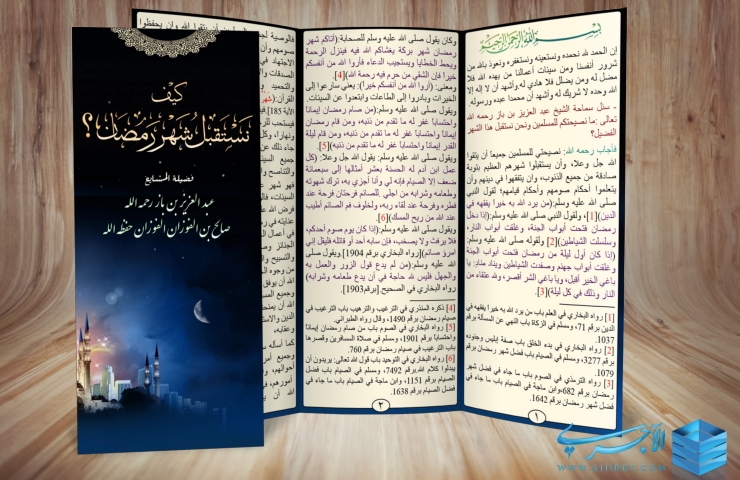 كيف
نستقبل شهر رمضان؟
فضيلة المشايخ
عبد العزيز بن باز رحمه الله
صالح بن الفوزان الفوزان حفظه الله
بسم الله الرحمن الرحيم
إن الحمد لله نحمده ونستعينه ونستغفره ونعوذ بالله من
شرور أنفسنا ومن سيئات أعمالنا من يهده الله فلا
مضل له ومن يضلل فلا هادي له وأشهد أن لا إله إلا
الله وحده لا شريك له وأشهد أن محمدا عبده ورسوله.
- سئل سماحة الشيخ عبد العزيز بن باز رحمه الله
تعالى :ما نصيحتكم للمسلمين ونحن نستقبل هذا الشهر
الفضيل؟
فأجاب رحمه الله: نصيحتي للمسلمين جميعا أن يتقوا
الله جل وعلا، وأن يستقبلوا شهرهم العظيم بتوبة
صادقة من جميع الذنوب، وأن يتفقهوا في دينهم وأن
يتعلموا أحكام صومهم وأحكام قيامهم؛ لقول النبي
صلى الله عليه وسلم:(من يرد الله به خيرا يفقهه في
الدين)[1]، ولقول النبي صلى الله عليه وسلم:(إذا دخل
رمضان فتحت أبواب الجنة، وغلقت أبواب النار،
وسلسلت الشياطين)[2] ولقوله صلى الله عليه وسلم:
(إذا كان أول ليلة من رمضان فتحت أبواب الجنة
وغلقت أبواب جهنم وصفدت الشياطين وينادِ مناد: يا
باغي الخير أقبل، ويا باغي الشر أقصر، ولله عتقاء من
النار وذلك في كل ليلة)[3].
[1] رواه البخاري في العلم باب من يرد الله به خيرا يفقهه في
الدين برقم 71، ومسلم في الزكاة باب النهي عن المسألة برقم
1037.
[2] رواه البخاري في بدء الخلق باب صفة إبليس وجنوده
برقم 3277، ومسلم في الصيام باب فضل شهر رمضان برقم
1079.
[3] رواه الترمذي في الصوم باب ما جاء في فضل شهر
رمضان برقم 682،وابن ماجة في الصيام باب ما جاء في
فضل شهر رمضان برقم 1642.
١
وكان يقول صلى الله عليه وسلم للصحابة:(أتاكم شهر
رمضان شهر بركة يغشاكم الله فيه فينزل الرحمة
ويحط الخطايا ويستجيب الدعاء فأروا الله من أنفسكم
خيرا فإن الشقي من حرم فيه رحمة الله)[4].
ومعنى: (أروا الله من أنفسكم خيرا): يعني سارعوا إلى
الخيرات وبادروا إلى الطاعات وابتعدوا عن السيئات.
ويقول صلى الله عليه وسلم:(من صام رمضان إيمانا
واحتسابا غفر له ما تقدم من ذنبه، ومن قام رمضان
إيمانا واحتسابا غفر له ما تقدم من ذنبه، ومن قام ليلة
القدر إيمانا واحتسابا غفر له ما تقدم من ذنبه)[5].
ويقول صلى الله عليه وسلم: يقول الله جل وعلا: (كل
عمل ابن آدم له الحسنة بعشر أمثالها إلى سبعمائة
ضعف إلا الصيام فإنه لي وأنا أجزي به، ترك شهوته
وطعامه وشرابه من أجلي للصائم فرحتان فرحة عند
فطره وفرحة عند لقاء ربه، ولخلوف فم الصائم أطيب
عند الله من ريح المسك)[6].
ويقول صلى الله عليه وسلم:(إذا كان يوم صوم أحدكم،
فلا يرفث ولا يصخب، فإن سابه أحد أو قاتله فليقل إني
امرؤ صائم)[رواه البخاري برقم 1904].ويقول صلى
الله عليه وسلم:(من لم يدع قول الزور والعمل به
والجهل فليس لله حاجة في أن يدع طعامه وشرابه)
رواه البخاري في الصحيح.[برقم1903].
[4] ذكره المنذري في الترغيب والترهيب باب الترغيب في
صيام رمضان برقم 1490، وقال رواه الطبراني.
[5] رواه البخاري في الصوم باب من صام رمضان إيمانا
واحتسابا برقم 1901، ومسلم في صلاة المسافرين وقصرها
باب الترغيب في صيام رمضان برقم 760.
[6] رواه البخاري في التوحيد باب قول الله تعالى: يريدون أن
يبدلوا كلام الله،برقم 7492، ومسلم في الصيام باب فضل
الصيام برقم 1151، وابن ماجة في الصيام باب ما جاء في
فضل الصيام برقم 1638.
٢
الآجري
WWW.AJURRY.COM